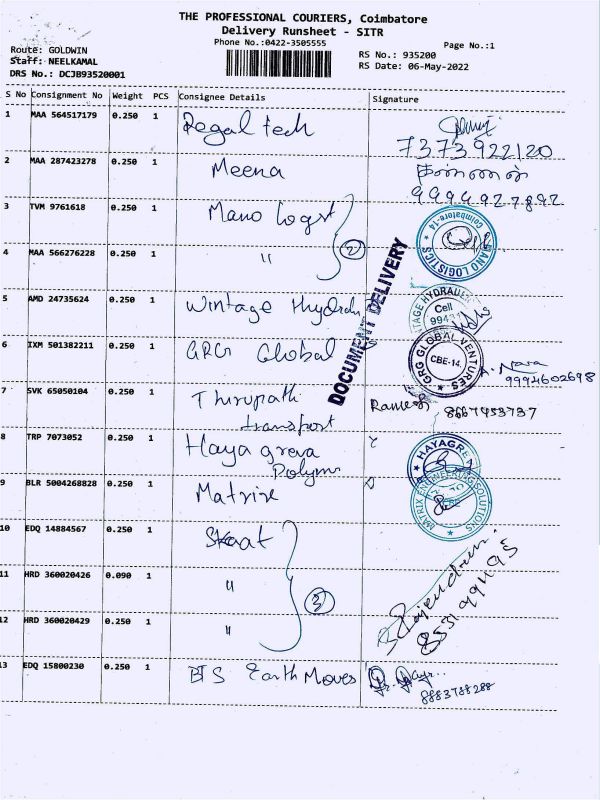 THE PROFESSIONAL COURIERS, Coimbatore
Delivery Runsheet - SITR
Phone No.:0422-3505555
Page No.:1
Route: GOLDWIN
Staff: NEELKAMAL
DRS No.: DCJB93520001
RS No.: 935200
RS Date: 06-May-2022
S No Consignment No Weight PCS Consignee Details Signature
1 MAA 564517179 0.250 1 Regal tech
7373922120
2 MAA 287423278 0.250 1 Meena
9994927892
3 TVM 9761618 0.250 1 Mano Logst
coimbatore-14
MANO LOGISTICS
2
4 MAA 566276228 0.250 1 "
DOCUMENT DELIVERY
5 AMD 24735624 0.250 1 Wintage Hydrau
TAGE HYDRAUL
Cell
6 IXM 501382211 0.250 1 GRG Global
GRG GLOBAL VENTURES
CBE-14.
9994602698
7 SVK 65050104 0.250 1 Thirupath
transport
Ramesh 8667453737
8 TRP 7073052 0.250 1 Haya greva
Polyms
HAYAGRE
9 BLR 5004268828 0.250 1 Matrix
MATRIX ENGINEERING SOLUTIONS
10 EDQ 14884567 0.250 1 Skaat
11 HRD 360020426 0.090 1 "
3
Rajendran
12 HRD 360020429 0.250 1 "
13 EDQ 15800230 0.250 1 BTS Earth Moves
8883788288